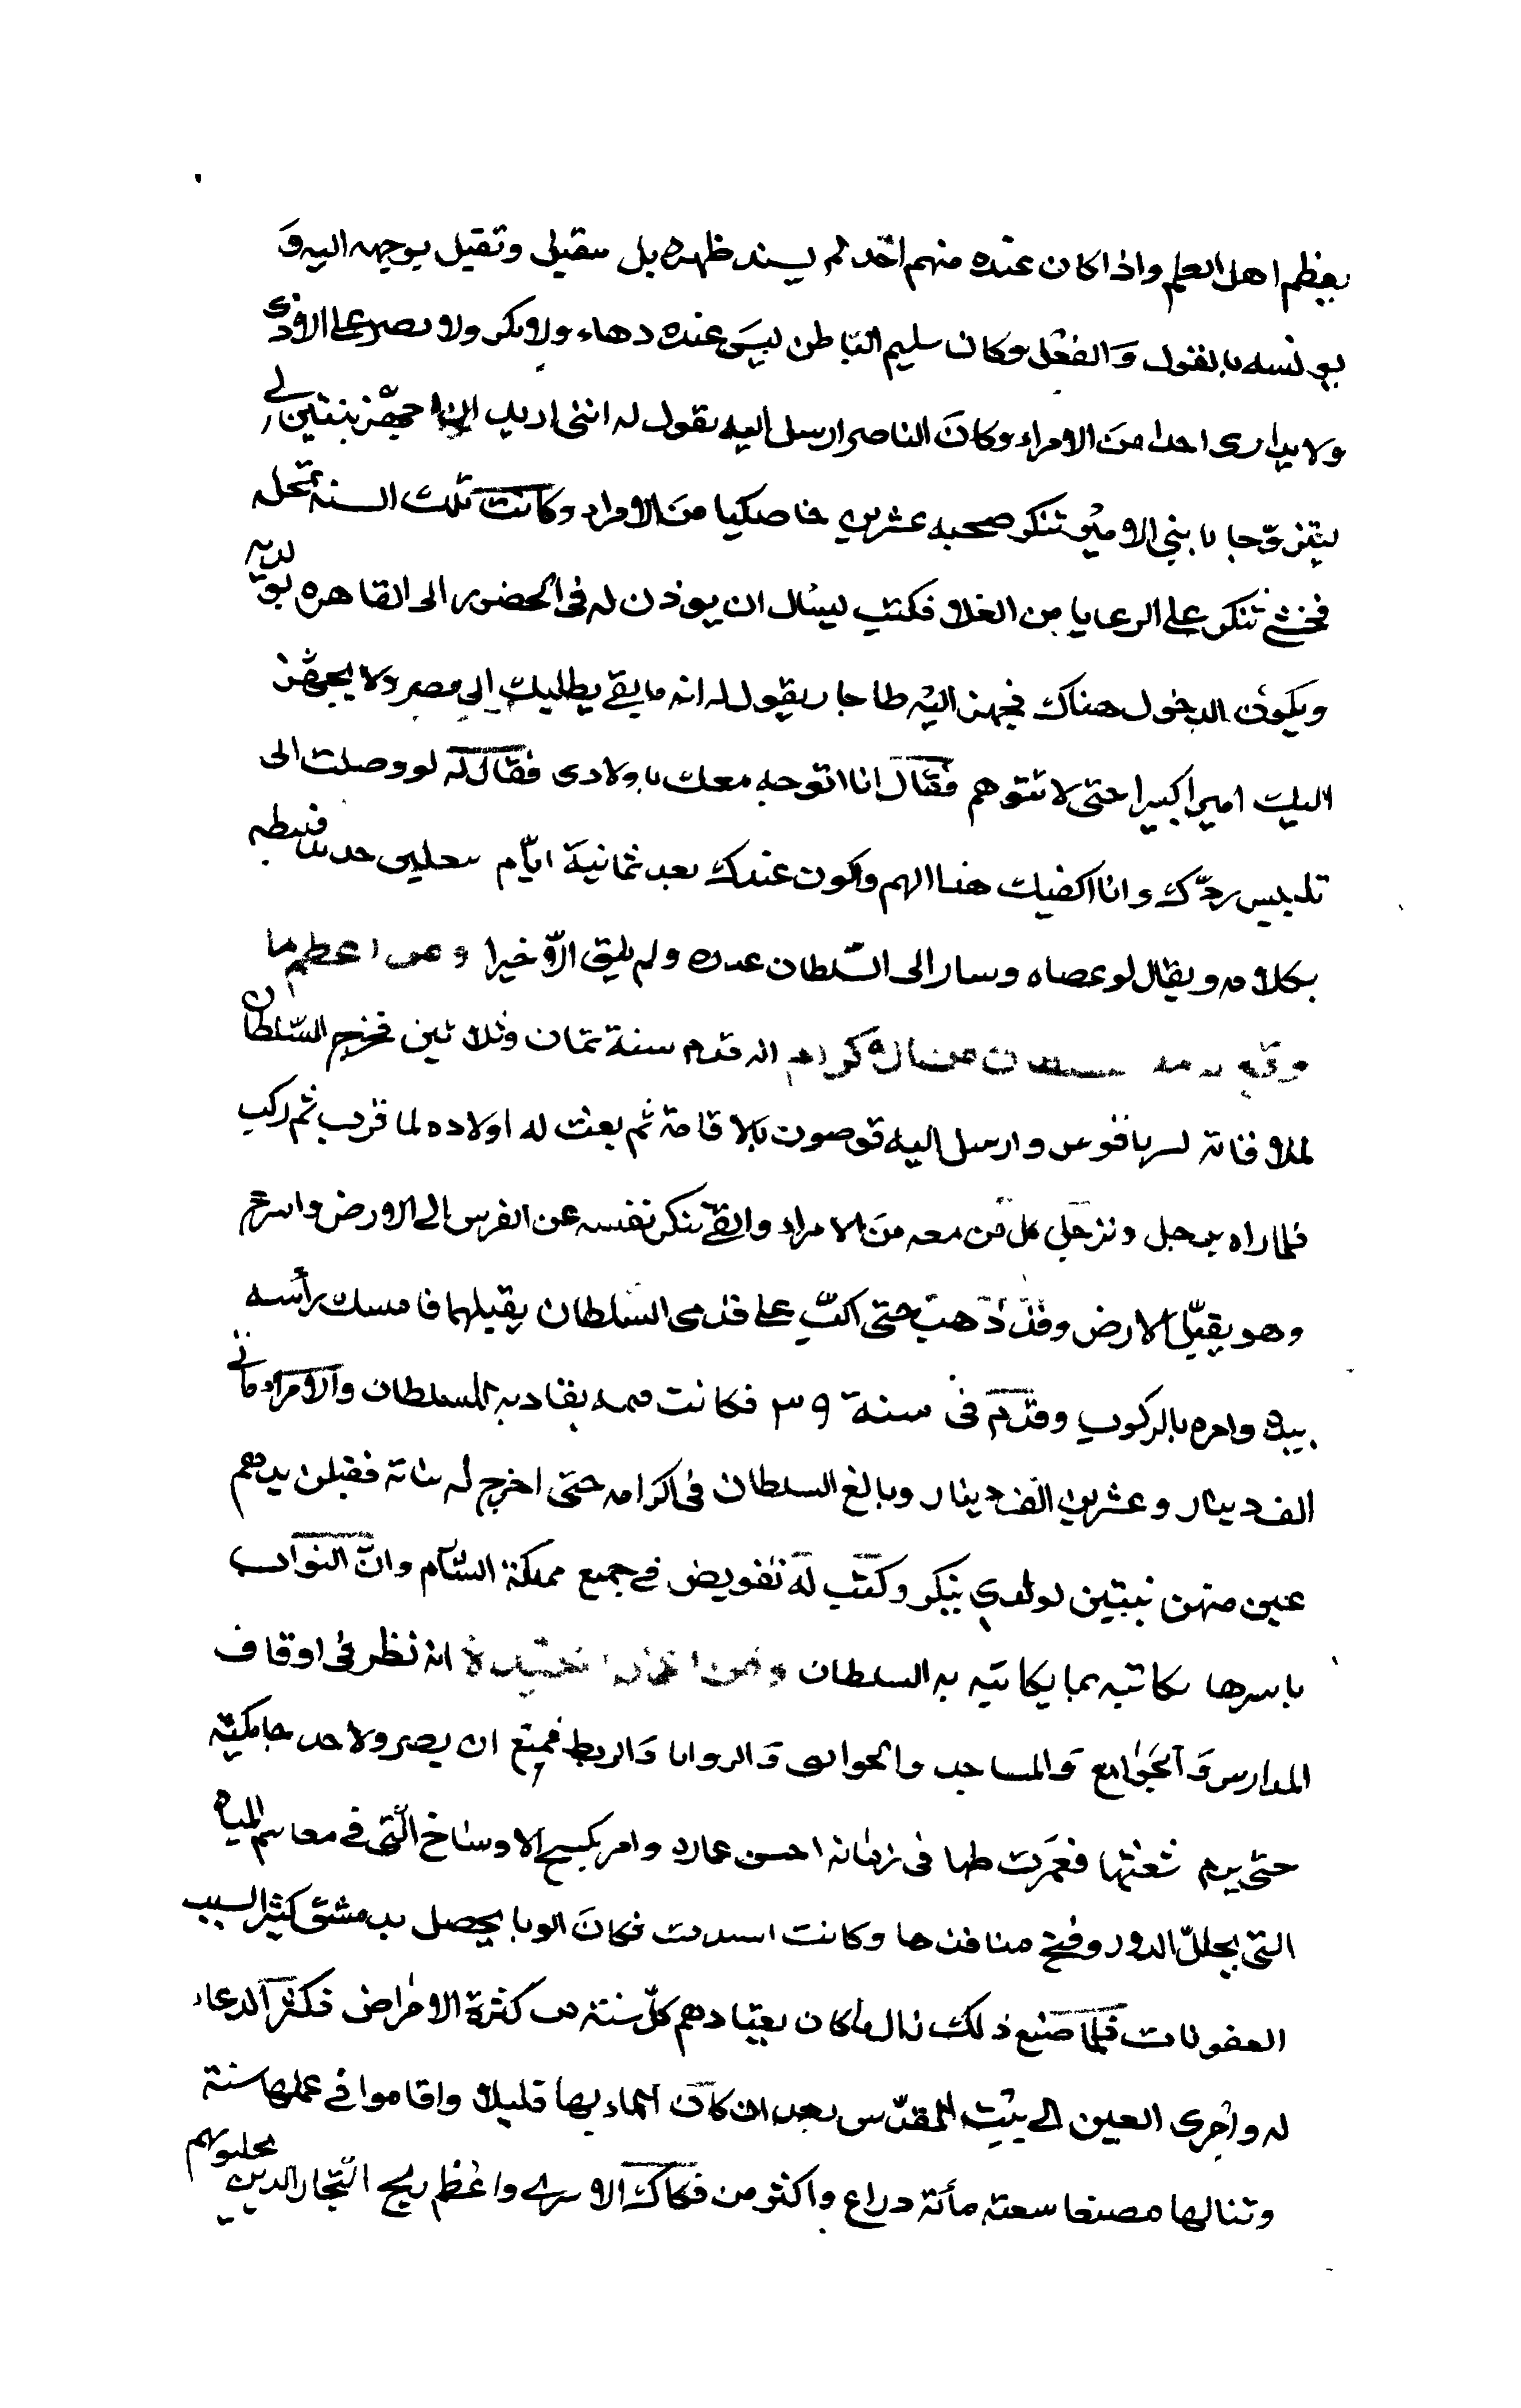 يعظم اهل العلم واذا كان عنده منهم احد لم يسند ظهره بل ينفتل ويقبل بوجهه اليه و
يونسه بالقول والفعل وكان سليم الباطن ليس عنده دهاء ولا مكر ولا يصبر على الاذى
ولا يدارى احدا من الامراء وكان الناصر ارسل اليه يقول له اننى اريد ان اجهز بنتين لي
ليتزوجا بابني الامير تنكز صحبة عشرين خاصكيا من الامراء وكانت تلك السنة محله
فخشي تنكز على الرعايا من الغلا فكتب ليسال ان يوذن له فى الحضور الى القاهره
ويكون الدخول هناك فجهز اليه طاجار يقول له انه ما بقي يطلبك الى مصر ولا يجهز
اليك اميرا كبيرا حتى لا تتوهم فقال انا اتوجه معك باولادى فقال له لو وصلت الى
تلبيس ردك وانا اكفيك هذا الهم واكون عندك بعد ثمانية ايام فبطه
بكلامه ويقال لو عصاه وسار الى السلطان ولم يلق الا خيرا ومن اعظم ما
وقع من الاكرام انه قدم سنة ثمان وثلاثين فخرج السلطان
لملاقاته لسرياقوس وارسل اليه قوصون بالاقامة ثم بعث له اولاده لما قرب ثم ركب
فلما راه ترجل ونزجل كل من معه من الامراء والقى تنكز نفسه عن الفرس الى الارض واسرع
وهو يقبل الارض وقد ذهب حتى اكب على قدمى السلطان يقبلهما فامسك رأسه
بيده وامره بالركوب وقدم فى سنة ٣٩ فكانت قيمة تقادمه للسلطان والامراء مائتي
الف دينار وعشرين الف دينار وبالغ السلطان فى اكرامه حتى اخرج له بناته فقبلن يده ثم
عين منهن بنتين لولدي تنكز وكتب له تفويض في جميع مملكة الشام وان النواب
باسرها تكاتبه بما يكاتبه به السلطان ومن انه نظر فى اوقاف
المدارس والجوامع والمساجد والخوانق والزوايا والربط فمنع ان يصرف لاحد جامكية
حتى يرم شعثها فعمرت كلها فى زمانه احسن عماره وامر بكسح الاوساخ التى في مقاسم المياه
التى بخلل الدور وفتح منافذها وكانت انسدت فكان الوبا يحصل بدمشق كثيرا لسبب
العفونات فلما صنع ذلك زال ما كان يعتادهم كل سنة من كثرة الامراض فكثر الدعاء
له واجرى العين الى بيت المقدس بعد ان كان الماء بها قليلا واقاموا في عملها سنة
وبنا لها مصنعا سعته مأئة دراع واكثر من فكاك الاسرى واعظم ربح التجار الدين يجلبونهم